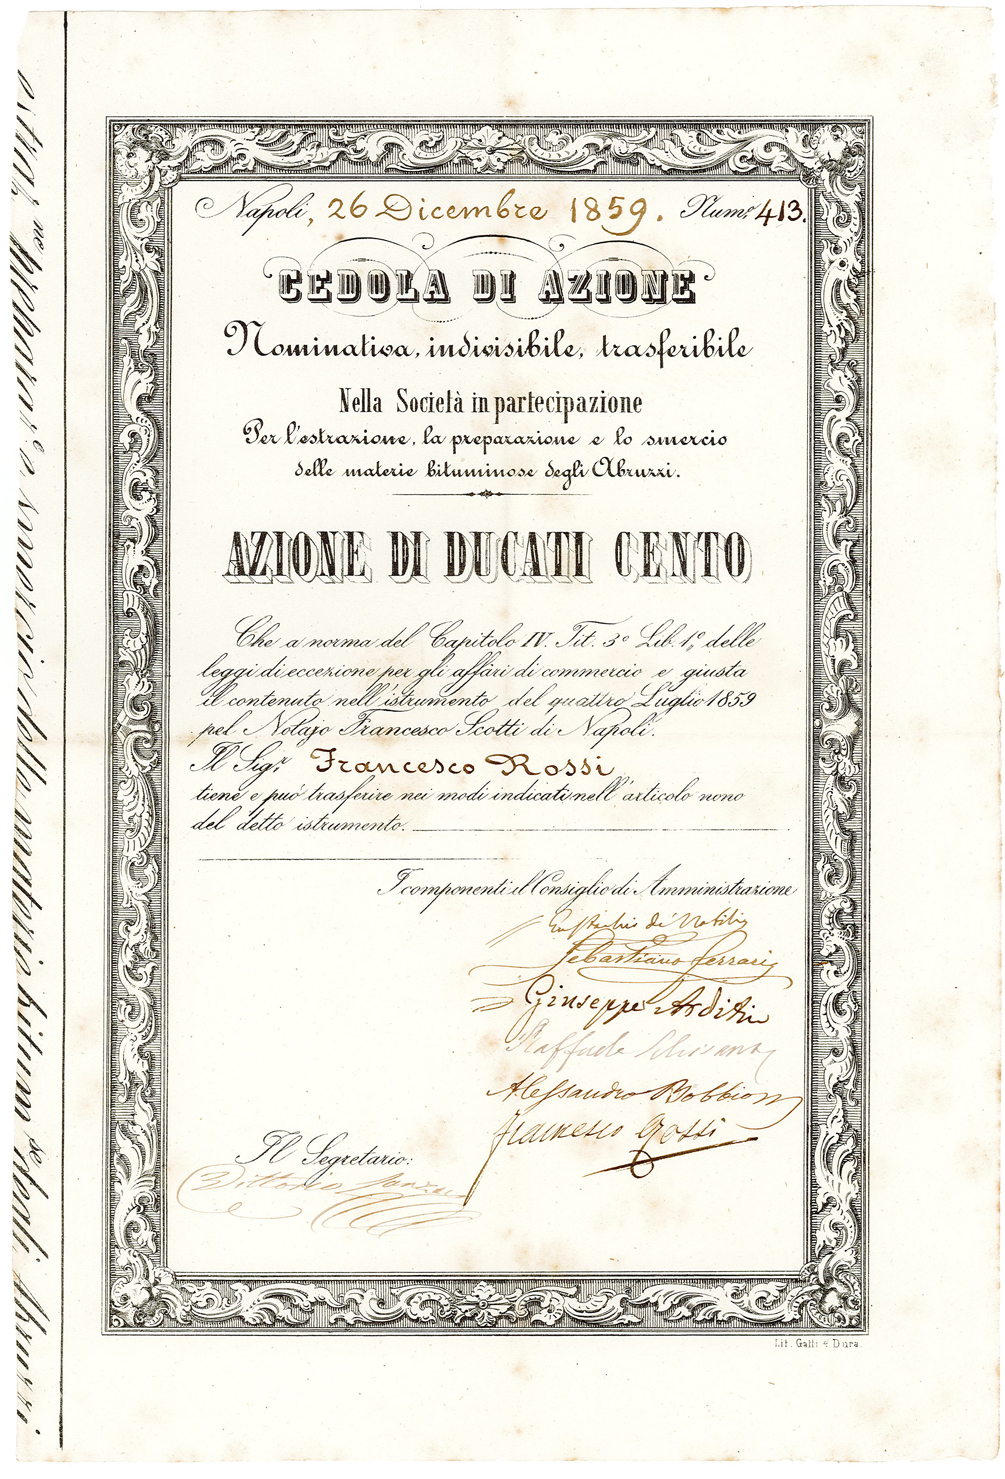 Napoli, 26 Dicembre 1859. Num.º 413.
CEDOLA DI AZIONE
Nominativa, indivisibile, trasferibile
Nella Società in partecipazione
Per l'estrazione, la preparazione e lo smercio
delle materie bituminose degli Abruzzi.
AZIONE DI DUCATI CENTO
Che a norma del Capitolo IV. Tit. 3º Lib. 1º delle
leggi di eccezione per gli affari di commercio e giusta
il contenuto nell'istrumento del quattro Luglio 1859
pel Notajo Francesco Scotti di Napoli.
Il Sig.r Francesco Rossi
tiene e può trasferire nei modi indicati nell'articolo nono
del detto istrumento.
I componenti il Consiglio di Amministrazione
Sebastiano Ferrari
Giuseppe
Raffaele
Alessandro
Francesco Rossi
Il Segretario:
Vittorio
Lit. Gatti e Dura.
estraz.ne preparaz.e e smercio delle materie bitum.se degli Abruzzi